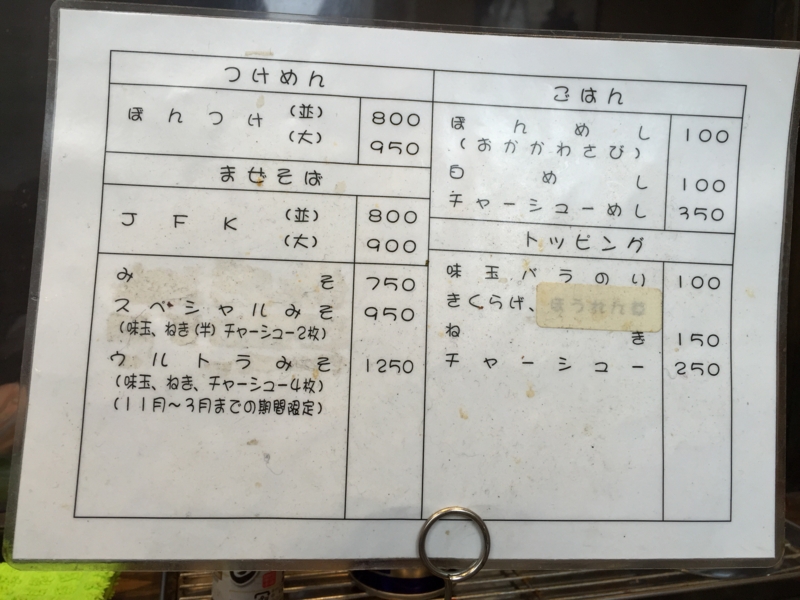 つけめん
ぽんつけ (並) 800
(大) 950
まぜそば
JFK (並) 800
(大) 900
みそ 750
スペシャルみそ 950
(味玉、ねぎ(半)チャーシュー2枚)
ウルトラみそ 1250
(味玉、ねぎ、チャーシュー4枚)
(11月〜3月までの期間限定)
ごはん
ぽんめし 100
(おかかわさび)
白めし 100
チャーシューめし 350
トッピング
味玉バラのり 100
きくらげ、ほうれん草
ねぎ 150
チャーシュー 250